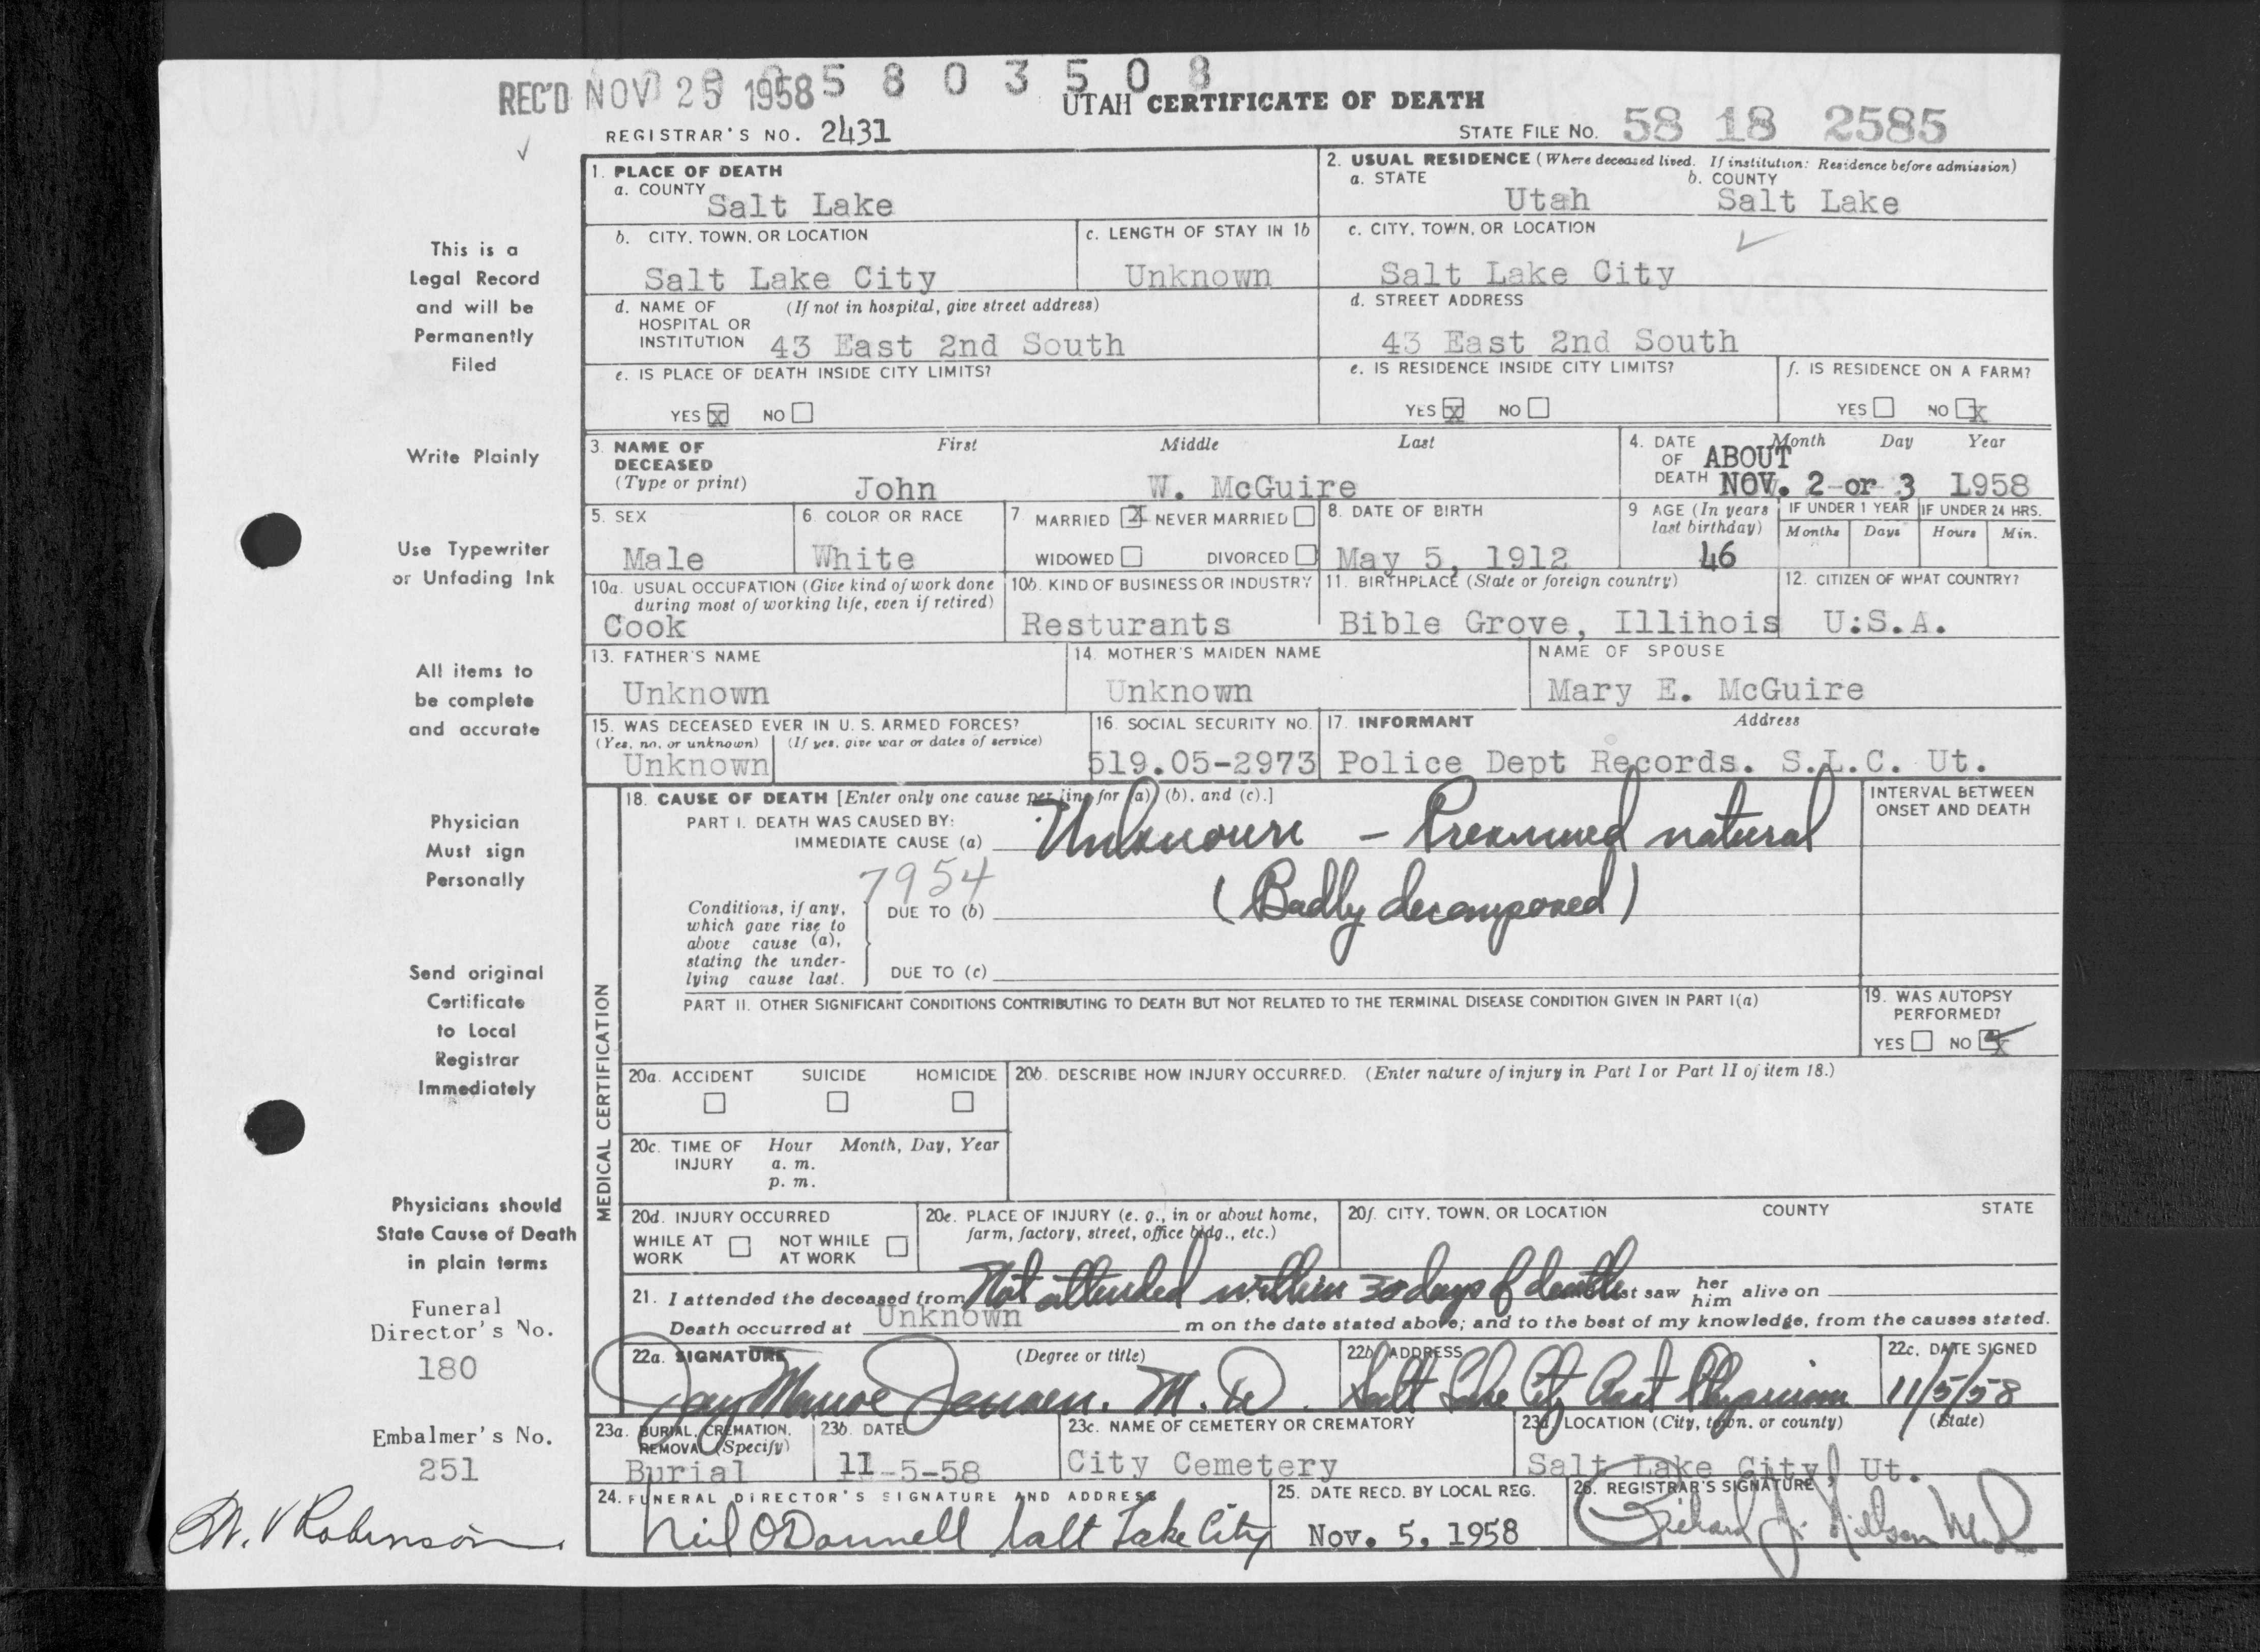 REC'D NOV 25 1958 5 8 0 3 5 0 8
UTAH CERTIFICATE OF DEATH
REGISTRAR'S NO. 2431
STATE FILE NO. 58 18 2585
This is a
Legal Record
and will be
Permanently
Filed
Write Plainly
Use Typewriter
or Unfading Ink
All items to
be complete
and accurate
Physician
Must sign
Personally
Send original
Certificate
to Local
Registrar
Immediately
Physicians should
State Cause of Death
in plain terms
Funeral
Director's No.
180
Embalmer's No.
251
Robinson
1. PLACE OF DEATH
a. COUNTY
Salt Lake
2. USUAL RESIDENCE (Where deceased lived. If institution: Residence before admission)
a. STATE
Utah
b. COUNTY
Salt Lake
b. CITY, TOWN, OR LOCATION
Salt Lake City
c. LENGTH OF STAY IN 1b
Unknown
c. CITY, TOWN, OR LOCATION
Salt Lake City
d. NAME OF (If not in hospital, give street address)
HOSPITAL OR
INSTITUTION 43 East 2nd South
d. STREET ADDRESS
43 East 2nd South
e. IS PLACE OF DEATH INSIDE CITY LIMITS?
YES X NO
e. IS RESIDENCE INSIDE CITY LIMITS?
YES X NO
f. IS RESIDENCE ON A FARM?
YES NO X
3. NAME OF
DECEASED
(Type or print)
First Middle Last
John W. McGuire
4. DATE
OF
DEATH
Month Day Year
ABOUT
NOV. 2 or 3 1958
5. SEX
Male
6. COLOR OR RACE
White
7 MARRIED X NEVER MARRIED
WIDOWED DIVORCED
8. DATE OF BIRTH
May 5, 1912
9 AGE (In years
last birthday)
46
IF UNDER 1 YEAR
Months Days
IF UNDER 24 HRS.
Hours Min.
10a. USUAL OCCUPATION (Give kind of work done
during most of working life, even if retired)
Cook
10b. KIND OF BUSINESS OR INDUSTRY
Resturants
11. BIRTHPLACE (State or foreign country)
Bible Grove, Illihois
12. CITIZEN OF WHAT COUNTRY?
U:S.A.
13. FATHER'S NAME
Unknown
14. MOTHER'S MAIDEN NAME
Unknown
NAME OF SPOUSE
Mary E. McGuire
15. WAS DECEASED EVER IN U. S. ARMED FORCES?
(Yes, no, or unknown) (If yes, give war or dates of service)
Unknown
16. SOCIAL SECURITY NO.
519.05-2973
17. INFORMANT Address
Police Dept Records. S.L.C. Ut.
MEDICAL CERTIFICATION
18. CAUSE OF DEATH [Enter only one cause per line for (a), (b), and (c).]
PART I. DEATH WAS CAUSED BY:
IMMEDIATE CAUSE (a) Unknown - Presumed natural
7954
(Badly decomposed)
Conditions, if any,
which gave rise to
above cause (a),
stating the under-
lying cause last.
DUE TO (b)
DUE TO (c)
INTERVAL BETWEEN
ONSET AND DEATH
PART II. OTHER SIGNIFICANT CONDITIONS CONTRIBUTING TO DEATH BUT NOT RELATED TO THE TERMINAL DISEASE CONDITION GIVEN IN PART I(a)
19. WAS AUTOPSY
PERFORMED?
YES NO X
20a. ACCIDENT SUICIDE HOMICIDE
20b. DESCRIBE HOW INJURY OCCURRED. (Enter nature of injury in Part I or Part II of item 18.)
20c. TIME OF Hour Month, Day, Year
INJURY a. m.
p. m.
20d. INJURY OCCURRED
WHILE AT WORK
NOT WHILE AT WORK
20e. PLACE OF INJURY (e. g., in or about home,
farm, factory, street, office bldg., etc.)
20f. CITY, TOWN, OR LOCATION COUNTY STATE
21. I attended the deceased from Not attended within 30 days of death st saw her him alive on
Death occurred at Unknown m on the date stated above; and to the best of my knowledge, from the causes stated.
22a. SIGNATURE (Degree or title)
Jensen, M.D.
22b. ADDRESS
Salt Lake City Asst Physician
22c. DATE SIGNED
11/5/58
23a. BURIAL, CREMATION,
REMOVAL (Specify)
Burial
23b. DATE
11-5-58
23c. NAME OF CEMETERY OR CREMATORY
City Cemetery
23d LOCATION (City, town, or county) (State)
Salt Lake City, Ut.
24. FUNERAL DIRECTOR'S SIGNATURE AND ADDRESS
Neil O'Donnell Salt Lake City
25. DATE RECD. BY LOCAL REG.
Nov. 5, 1958
26. REGISTRAR'S SIGNATURE
Richard J. Nillson